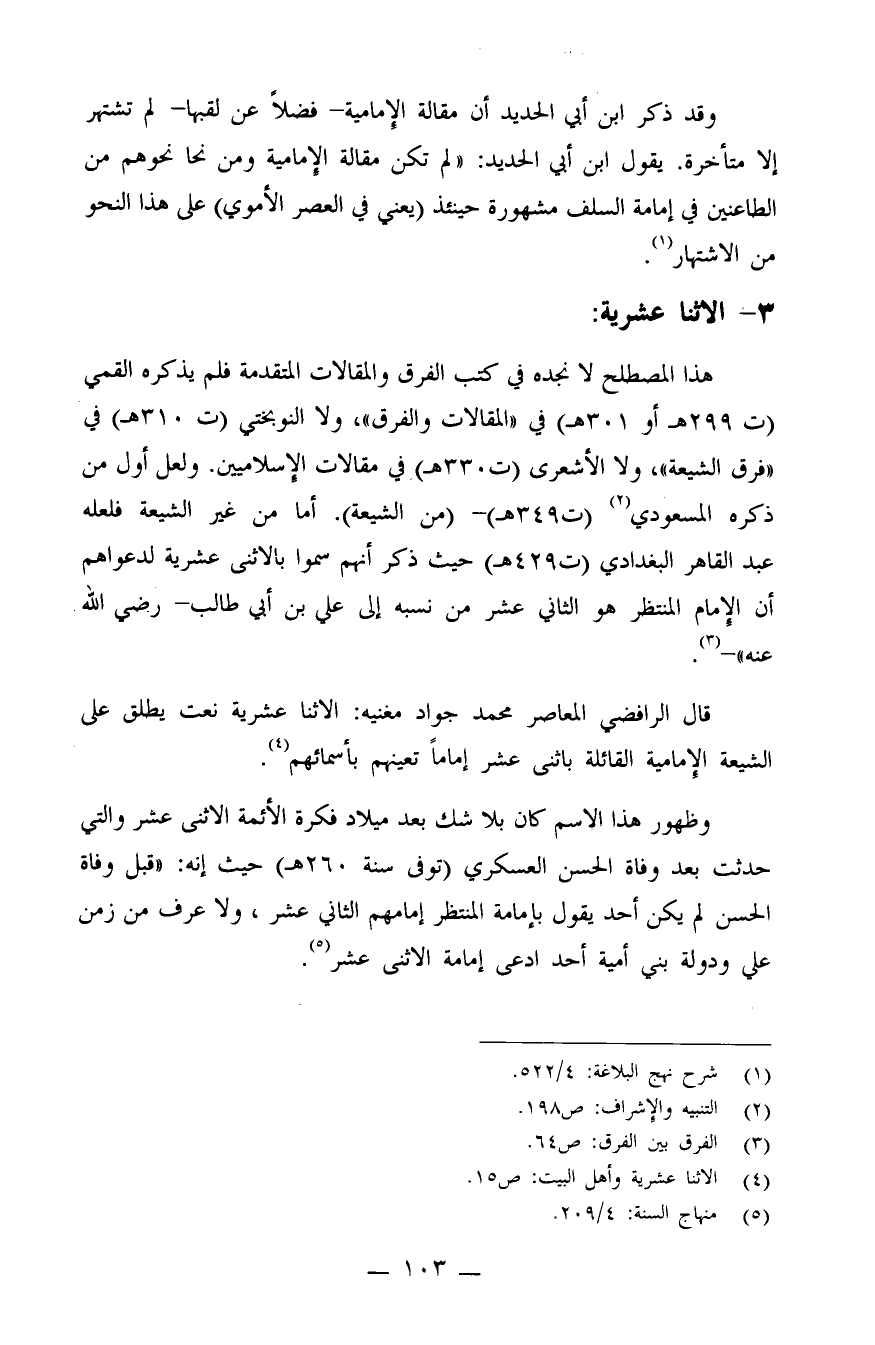 وقد ذكر ابن أبي الحديد أن مقالة الإمامية– فضلاً عن لقبها– لم تشتهر
إلا متأخرة. يقول ابن أبي الحديد: «لم تكن مقالة الإمامية ومن نحا نحوهم من
الطاعنين في إمامة السلف مشهورة حينئذ (يعني في العصر الأموي) على هذا النحو
من الاشتهار(١).
٣– الاثنا عشرية:
هذا المصطلح لا نجده في كتب الفرق والمقالات المتقدمة فلم يذكره القمي
(ت ٢٩٩هـ أو ٣٠١هـ) في «المقالات والفرق»، ولا النوبختي (ت ٣١٠هـ) في
«فرق الشيعة»، ولا الأشعرى (ت٣٣٠هـ) في مقالات الإسلاميين. ولعل أول من
ذكره المسعودي(٢) (ت٣٤٩هـ)– (من الشيعة). أما من غير الشيعة فلعله
عبد القاهر البغدادي (ت٤٢٩هـ) حيث ذكر أنهم سموا بالاثنى عشرية لدعواهم
أن الإمام المنتظر هو الثاني عشر من نسبه إلى علي بن أبي طالب– رضي الله
عنه»–(٣).
قال الرافضي المعاصر محمد جواد مغنيه: الاثنا عشرية نعت يطلق على
الشيعة الإمامية القائلة باثنى عشر إماماً تعينهم بأسمائهم(٤).
وظهور هذا الاسم كان بلا شك بعد ميلاد فكرة الأئمة الاثنى عشر والتي
حدثت بعد وفاة الحسن العسكري (توفى سنة ٢٦٠هـ) حيث إنه: «قبل وفاة
الحسن لم يكن أحد يقول بإمامة المنتظر إمامهم الثاني عشر ، ولا عرف من زمن
علي ودولة بني أمية أحد ادعى إمامة الاثنى عشر(٥).
(١) شرح نهج البلاغة: ٥٢٢/٤.
(٢) التنبيه والإشراف: ص١٩٨.
(٣) الفرق بين الفرق: ص٦٤.
(٤) الاثنا عشرية وأهل البيت: ص١٥.
(٥) منهاج السنة: ٢٠٩/٤.
— ١٠٣ —